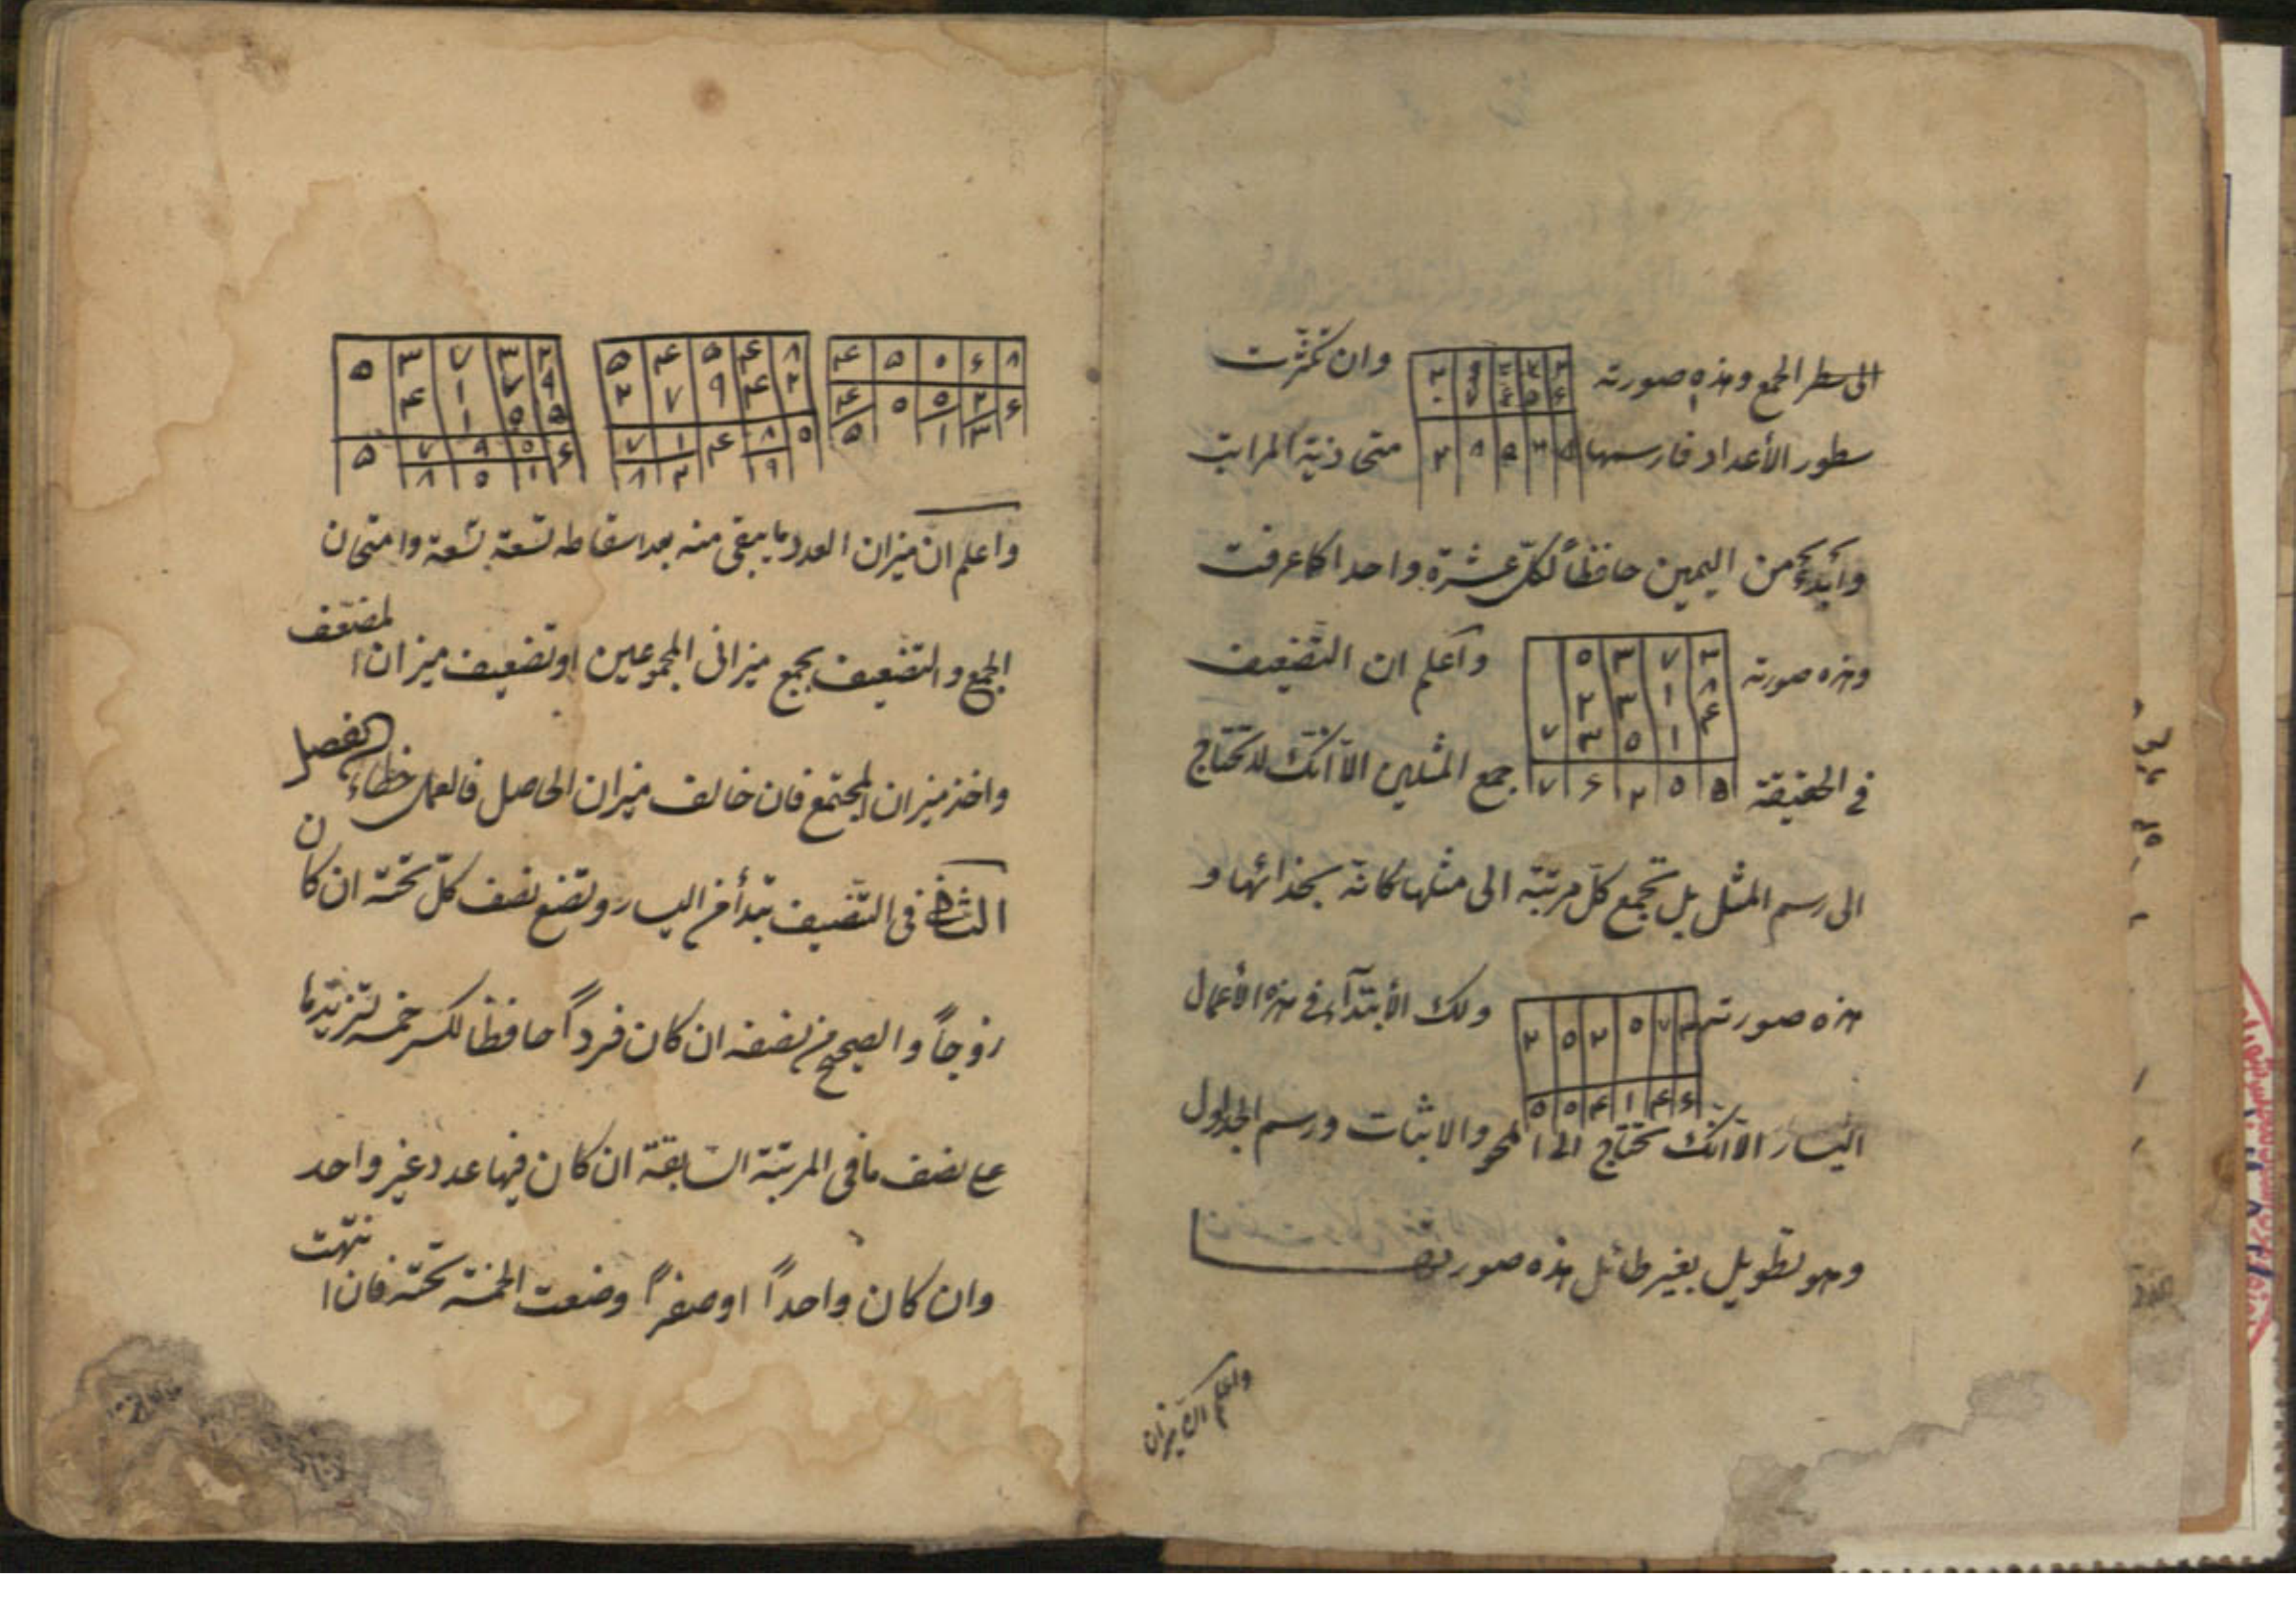 الى سطر الجمع وهذه صورته وان تكثرت
سطور الأعداد فارسمها متحاذية المراتب
وابدء من اليمين حافظاً لكل عشرة واحدا كما عرفت
وهذه صورته واعلم ان التضعيف
في الحقيقة جمع المثلين الا انك لا تحتاج
الى رسم المثل بل تجمع كل مرتبة الى مثلها كانه بحذائها و
هذه صورته ولك الأبتداء في هذه الأعمال
اليسار الا انك تحتاج الى المحو والاثبات ورسم الجداول
وهو تطويل بغير طائل هذه صورته
واعلم ان ميزان
۵ ۳ ۷ ۳
۲ ۳ ۱ ۸
۷ ۳ ۵ ۱ ۴
۷ ۶ ۲ ۵ ۵
۲ ۵ ۲ ۵ ۷ ۳
۵ ۵ ۴ ۱ ۴ ۶
۵ ۳ ۷ ۳ ۲
۴ ۱ ۷ ۹
۱ ۵ ۵
۵ ۷ ۹ ۵ ۶
۸ ۵ ۱
۵ ۴ ۵ ۴ ۸
۲ ۷ ۹ ۴ ۲
۷ ۱ ۴ ۸ ۵
۸ ۲ ۹
۴ ۵ ۰ ۶ ۸
۴ ۵ ۵ ۲ ۶
۵ ۱ ۳
واعلم ان ميزان العدد ما يبقى منه بعد اسقاطه تسعة تسعة وامتحان
الجمع والتضعيف بجمع ميزانى المجموعين او تضعيف ميزان المضعف
واخذ ميزان المجتمع فان خالف ميزان الحاصل فالعمل خطاء الفصل
الثانى فى التنصيف تبدأ من اليسار وتضع نصف كل تحته ان كان
زوجاً والصحيح من نصفه ان كان فرداً حافظا للكسر خمسة لتزيدها
على نصف ما فى المرتبة السابقة ان كان فيها عدد غير واحد
وان كان واحداً او صفراً وضعت الخمسة تحته فان انتهت